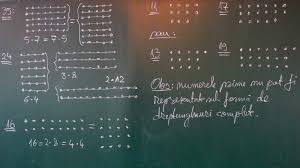 35:
5·7 = 7·5
24
3·8
2·12
6·4
16
16 = 2·8 = 4·4
11
17
13
19
Obs: numerele prime nu pot fi
reprezentate sub formă de
dreptunghiuri complet.